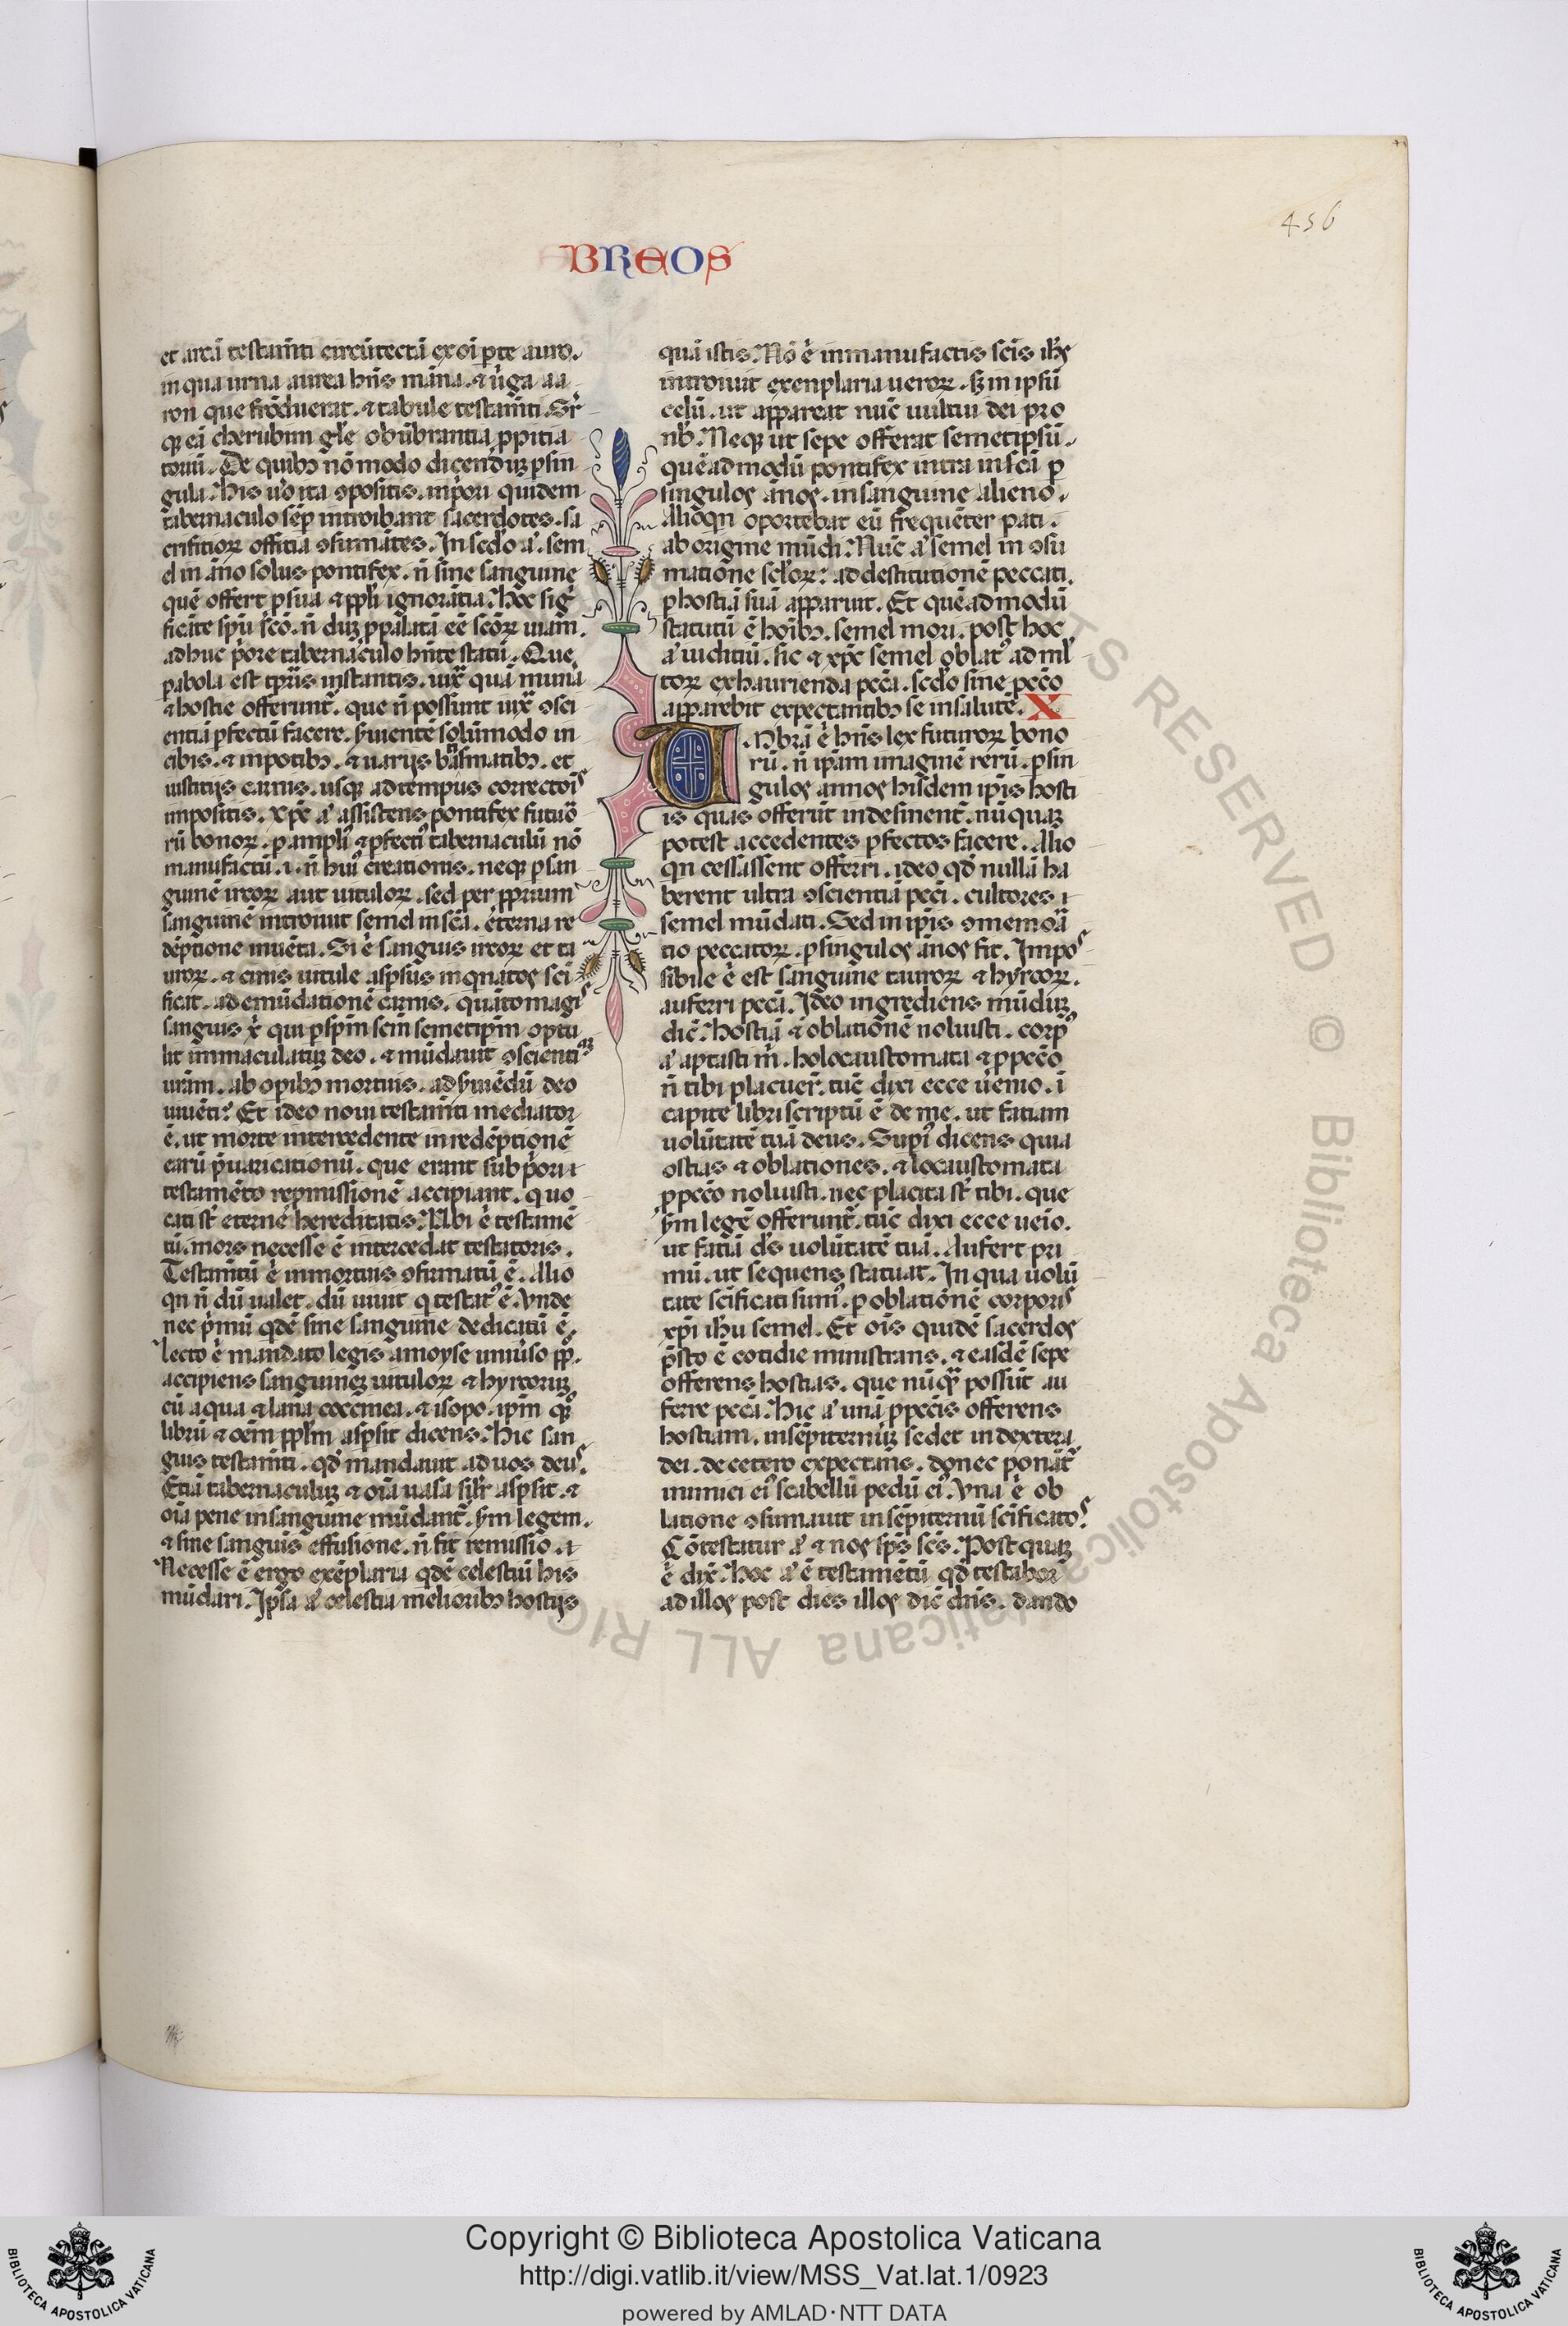 456
BREOS
et arcā testam̄ti circūtectā ex oī ꝑte auro.
in qua urna aurea hn̄s māna. ⁊ ũga aa
ron que frōduerat. ⁊ tabule testam̄ti. Sr̄
qꝫ eā cherubim gl̄e obūbrantia ꝓpitia
toriū. De quibꝫ nō modo dicendūꝫ ꝑ sin
gula. His ũo ita ꝯpositis. in p̄ori quidem
tabernaculo sēꝑ introibant sacerdotes. sa
crifitioꝝ offitia ꝯsumātes. In sc̄do aͥ. sem
el in āno solus pontifex. n̄ sine sanguine
quē offert ꝓ sua ⁊ ppl̄i ignorātia. Hoc sig̾
ficāte sp̄u sc̄o. n̄ duꝫ ꝓpalatā eē sc̄oꝝ uiam.
adhuc p̄ore tabernaculo hn̄te statū. Que
ꝑabola est tꝑris instantis. iuxͣ quā munā
⁊ hostie offerunt᷑. que n̄ possunt iuxͣ ꝯsci
entiā ꝑfectū facere. s̾uiente solūmodo in
cibis. ⁊ in potibꝫ. ⁊ uarijs baꝑsmatibꝫ. et
iustitijs carnis. usqꝫ ad tempus correctoīs
impositis. xp̄c aͥ assistens pontifex futuō
rū bonoꝝ. ꝑ ampliꝰ ⁊ ꝑfectiꝰ tabernaculū nō
manufactū. i. n̄ huiꝰ creationis. neqꝫ ꝑ san
guinē ircoꝝ aut uituloꝝ. sed per ꝓprium
sanguinē introiuit semel in sc̄a. eterna re
dēptione inuēta. Si eͥ sanguis ircoꝝ et ta
uroꝝ. ⁊ cinis uitule asꝑsus inqͥnatos sc̄i
ficat. ad emūdationē carnis. quāto magis
sanguis xͥ qui ꝑ sp̄m sc̄m semetip̄m optu
lit immaculatuꝫ deo. ⁊ mūdauit ꝯscientiaꝫ
urām. ab oꝑibꝫ mortuis. ad s̾uiēdū deo
uiuēti? Et ideo noui testam̄ti mediator
ē. ut morte intercedente in redēptionē
earū p̄uaricationū. que erant sub p̄ori
testamēto repmissionē accipiant. quo
cati st̄ eterne hereditatis. Vbi eͥ testamē
tū. mors necesse ē intercedat testatoris.
Testam̄tū eͥ in mortuis ꝯfirmatū ē. Alio
qn̄ n̄dū ualet. dū uiuit qͥ testatꝰ ē. Vnde
nec p̄mū qͥdē sine sanguine dedicatū ē.
Lecto eͥ mandato legis a moyse uniũso pp̄lo.
accipiens sanguineꝫ uituloꝝ ⁊ hyrcoruꝫ
cū aqua ⁊ lana coccinea. ⁊ isopo. ip̄m qͦqꝫ
librū ⁊ oēm ppl̄m asꝑsit dicens. Hic san
guis testam̄ti. qd̄ mandauit ad uos deus.
Etiā tabernaculuꝫ ⁊ oīa uasa sil̄r asꝑsit. ⁊
oīa pene in sanguine mūdant᷑. s̾m legem.
⁊ sine sanguis effusione. n̄ fit remissio.
Necesse ē ergo exēplaria qͥdē celestiū his
mūdari. Ip̄sa aͥ celestia melioribꝫ hostijs
quā istis. Nō eͥ in manufactis sc̄is ih̄s
introiuit exenplaria ueroꝝ. sꝫ in ipsū
celū. ut appareat nūc uultui dei pro
nb̄. Neqꝫ ut sepe offerat semetipsū.
quēadmodū pontifex intra in sc̄a ꝑ
singulos ānos. in sanguine alieno.
Alioqn̄ oportebat eū frequēter pati.
ab origine mūdi. Nūc aͥ semel in ꝯsū
matione scl̄oꝝ: ad destitutionē peccati.
ꝑ hostiā suā apparuit. Et quēadmodū
statutū ē hoībꝫ. semel mori. post hoc
aͥ iuditiū. sic ⁊ xp̄c semel oblatꝰ ad ml̄
toꝝ exhaurienda pc̄ca. sc̄do sine pc̄co
apparebit expectantibꝫ se in salutē. X
Vnbrā eͥ hn̄s lex futuroꝝ bono
rū. n̄ ip̄am imaginē rerū. ꝑ sin
gulos annos hisdem ip̄is hosti
is quas offerūt indesinent᷑. nūquaꝫ
potest accedentes ꝑfectos facere. Alio
qn̄ cessassent offerri. ideo qd̄ nullā ha
berent ultra ꝯscientiā pc̄ci. cultores
semel mūdati. Sed in ip̄is ꝯmemoā
tio peccatoꝝ. ꝑ singulos ānos fit. Impos
sibile eͥ est sanguine tauroꝝ ⁊ hyrcoꝝ.
auferri pc̄ca. Ideo ingrediens mūduꝫ
dic̄. Hostiā ⁊ oblationē noluisti. corpꝰ
aͥ aptasti m̄. holocaustomata ⁊ ꝓ pc̄co
n̄ tibi placuer̄. tūc dixi ecce uenio. ī
capite libri scriptū ē de me. ut fatiam
uolūtatē tuā deus. Supiꝰ dicens quia
ostias ⁊ oblationes. ⁊ locaustomata
ꝓ pc̄co noluisti. nec placita st̄ tibi. que
s̾m legē offerunt᷑. tūc dixi ecce ueīo.
ut fatiā ds̄ uolūtatē tuā. Aufert pri
mū. ut sequens statuat. In qua uolū
tate sc̄ificati sumꝰ. ꝑ oblationē corporis
xp̄i ih̄u semel. Et oīs quidē sacerdos
p̄sto ē cotidie ministrans. ⁊ easdē sepe
offerens hostias. que nūqͣꝫ possūt au
ferre pc̄ca. Hic aͥ unā ꝓ pc̄cis offerens
hostiam. in sēpiternuꝫ sedet in dextera
dei. de cetero expectans. donec ponāt᷑
inimici eiꝰ scabellū pedū eiꝰ. Vna eͥ ob
latione ꝯsumauit in sēpiternū sc̄ificatos.
Cōtestatur aͥ ⁊ nos sp̄s sc̄s. Post quaꝫ
eͥ dix̄. Hoc aͥ ē testamētū qd̄ testabor
ad illos post dies illos dic̄ dn̄s. dando
Copyright © Biblioteca Apostolica Vaticana
http://digi.vatlib.it/view/MSS_Vat.lat.1/0923
powered by AMLAD·NTT DATA
BIBLIOTECA APOSTOLICA VATICANA
BIBLIOTECA APOSTOLICA VATICANA